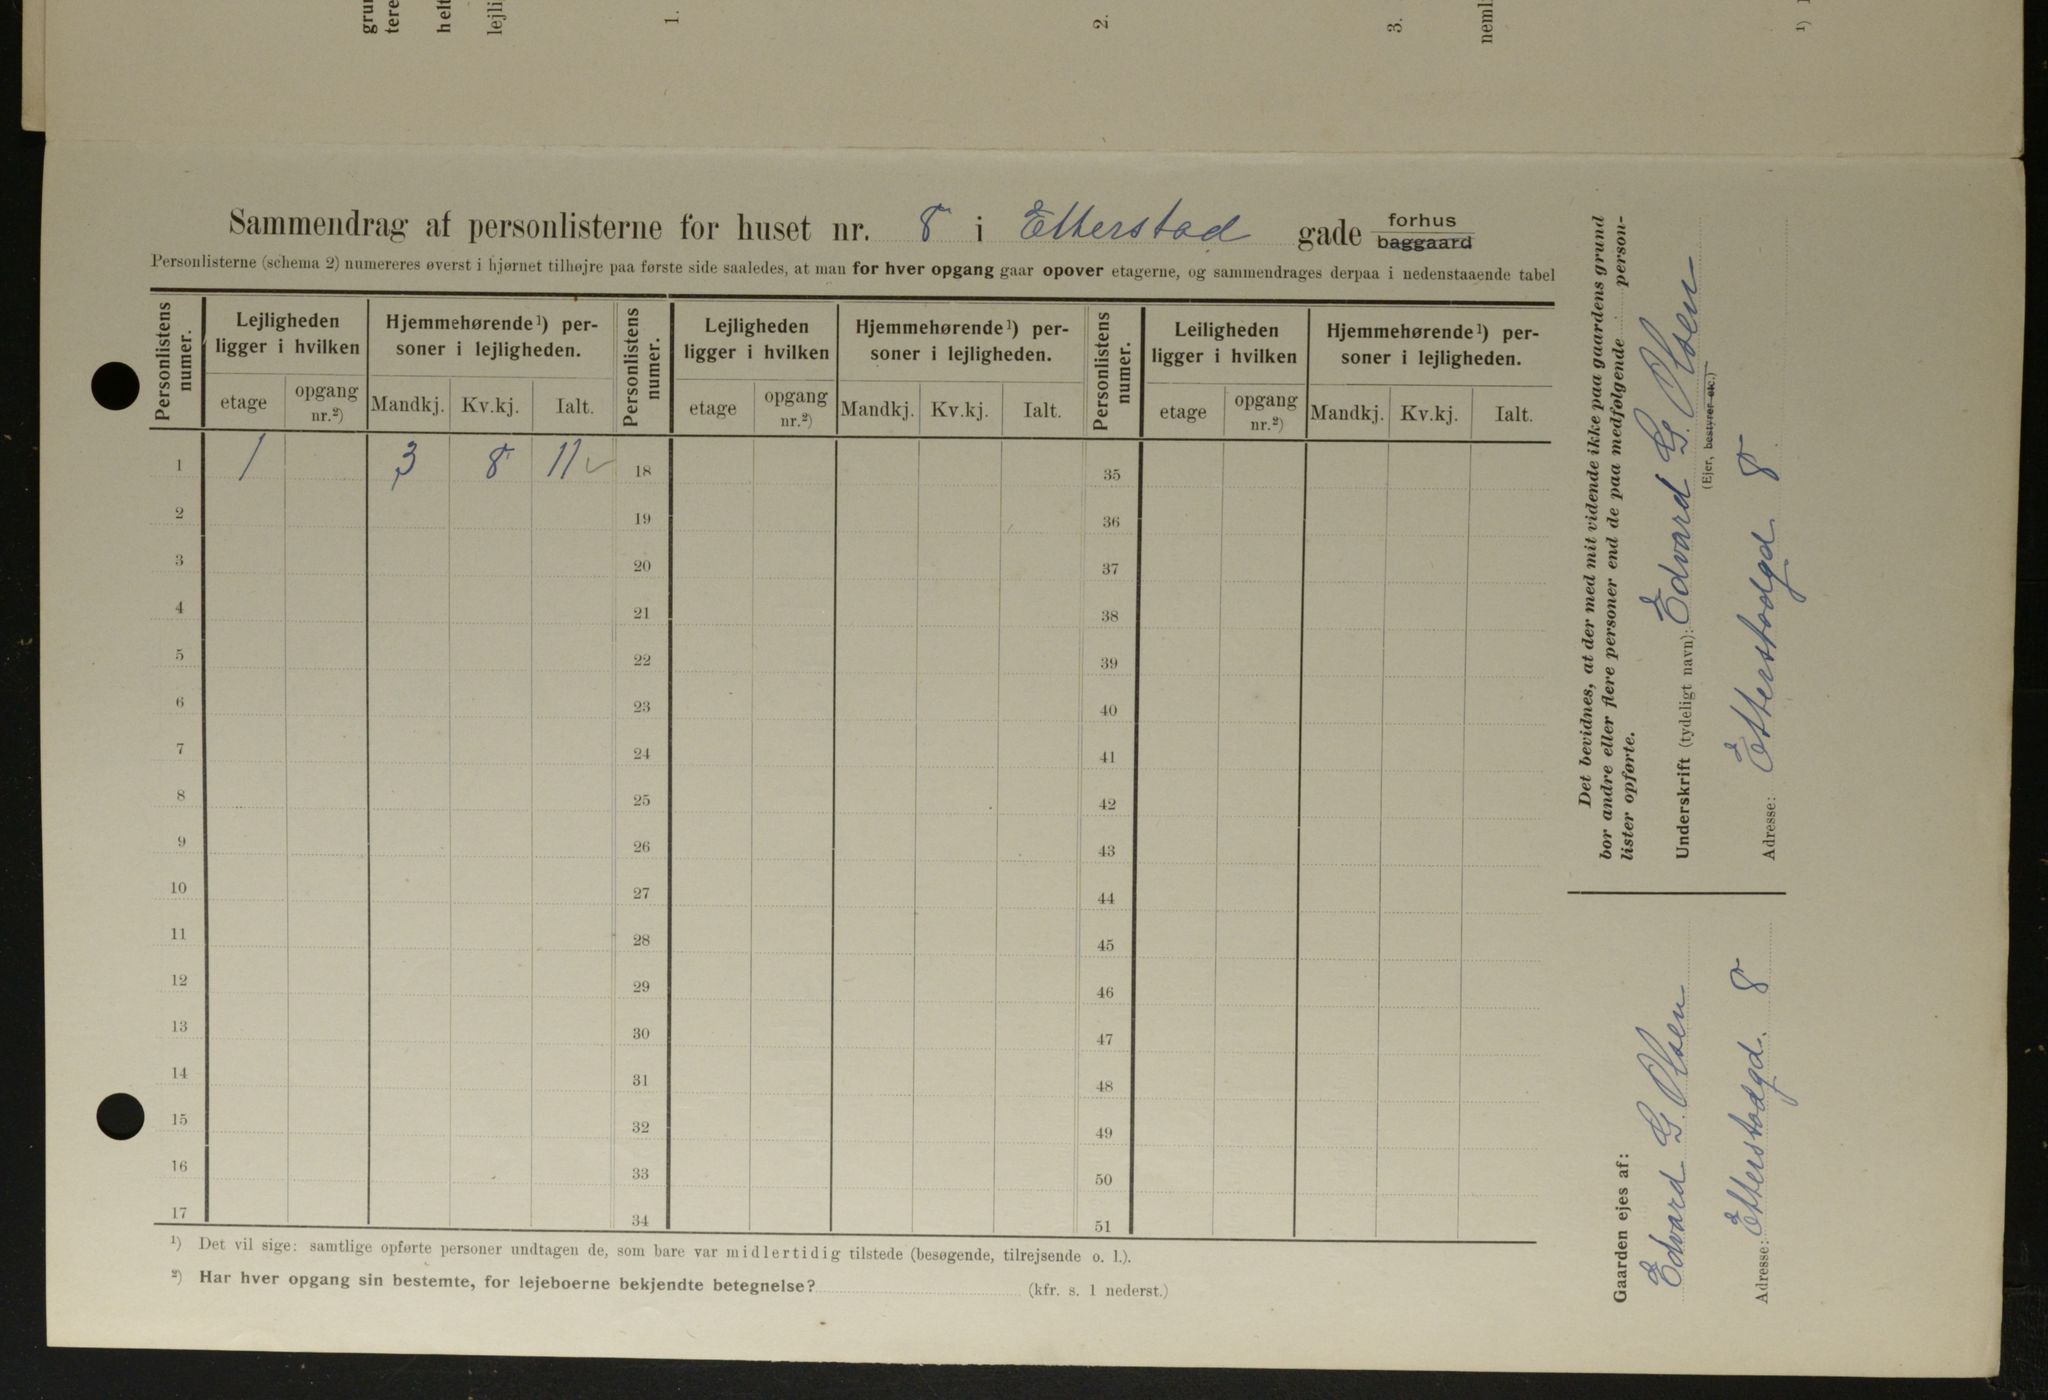 grun
tere
helt
lejli
1.
2.
3.
neml
¹) I
Sammendrag af personlisterne for huset nr. 8 i Etterstad gade forhus
baggaard
Personlisterne (schema 2) numereres øverst i hjørnet tilhøjre paa første side saaledes, at man for hver opgang gaar opover etagerne, og sammendrages derpaa i nedenstaaende tabel
Personlistens numer. Lejligheden ligger i hvilken Hjemmehørende¹) personer i lejligheden. Personlistens numer. Lejligheden ligger i hvilken Hjemmehørende¹) personer i lejligheden. Personlistens numer. Leiligheden ligger i hvilken Hjemmehørende¹) personer i lejligheden.
etage opgang nr.²) Mandkj. Kv.kj. Ialt. etage opgang nr.²) Mandkj. Kv.kj. Ialt. etage opgang nr.²) Mandkj. Kv.kj. Ialt.
1 1 3 8 11 ✓ 18 35
2 19 36
3 20 37
4 21 38
5 22 39
6 23 40
7 24 41
8 25 42
9 26 43
10 27 44
11 28 45
12 29 46
13 30 47
14 31 48
15 32 49
16 33 50
17 34 51
¹) Det vil sige: samtlige opførte personer undtagen de, som bare var midlertidig tilstede (besøgende, tilrejsende o. l.).
²) Har hver opgang sin bestemte, for lejeboerne bekjendte betegnelse? (kfr. s. 1 nederst.)
Det bevidnes, at der med mit vidende ikke paa gaardens grund
bor andre eller flere personer end de paa medfølgende person-
lister opførte.
Underskrift (tydeligt navn): Edvard G. Olsen
(Ejer, bestyrer etc.)
Adresse: Etterstadgd 8
Gaarden ejes af:
Edvard G. Olsen
Adresse: Etterstadgd. 8